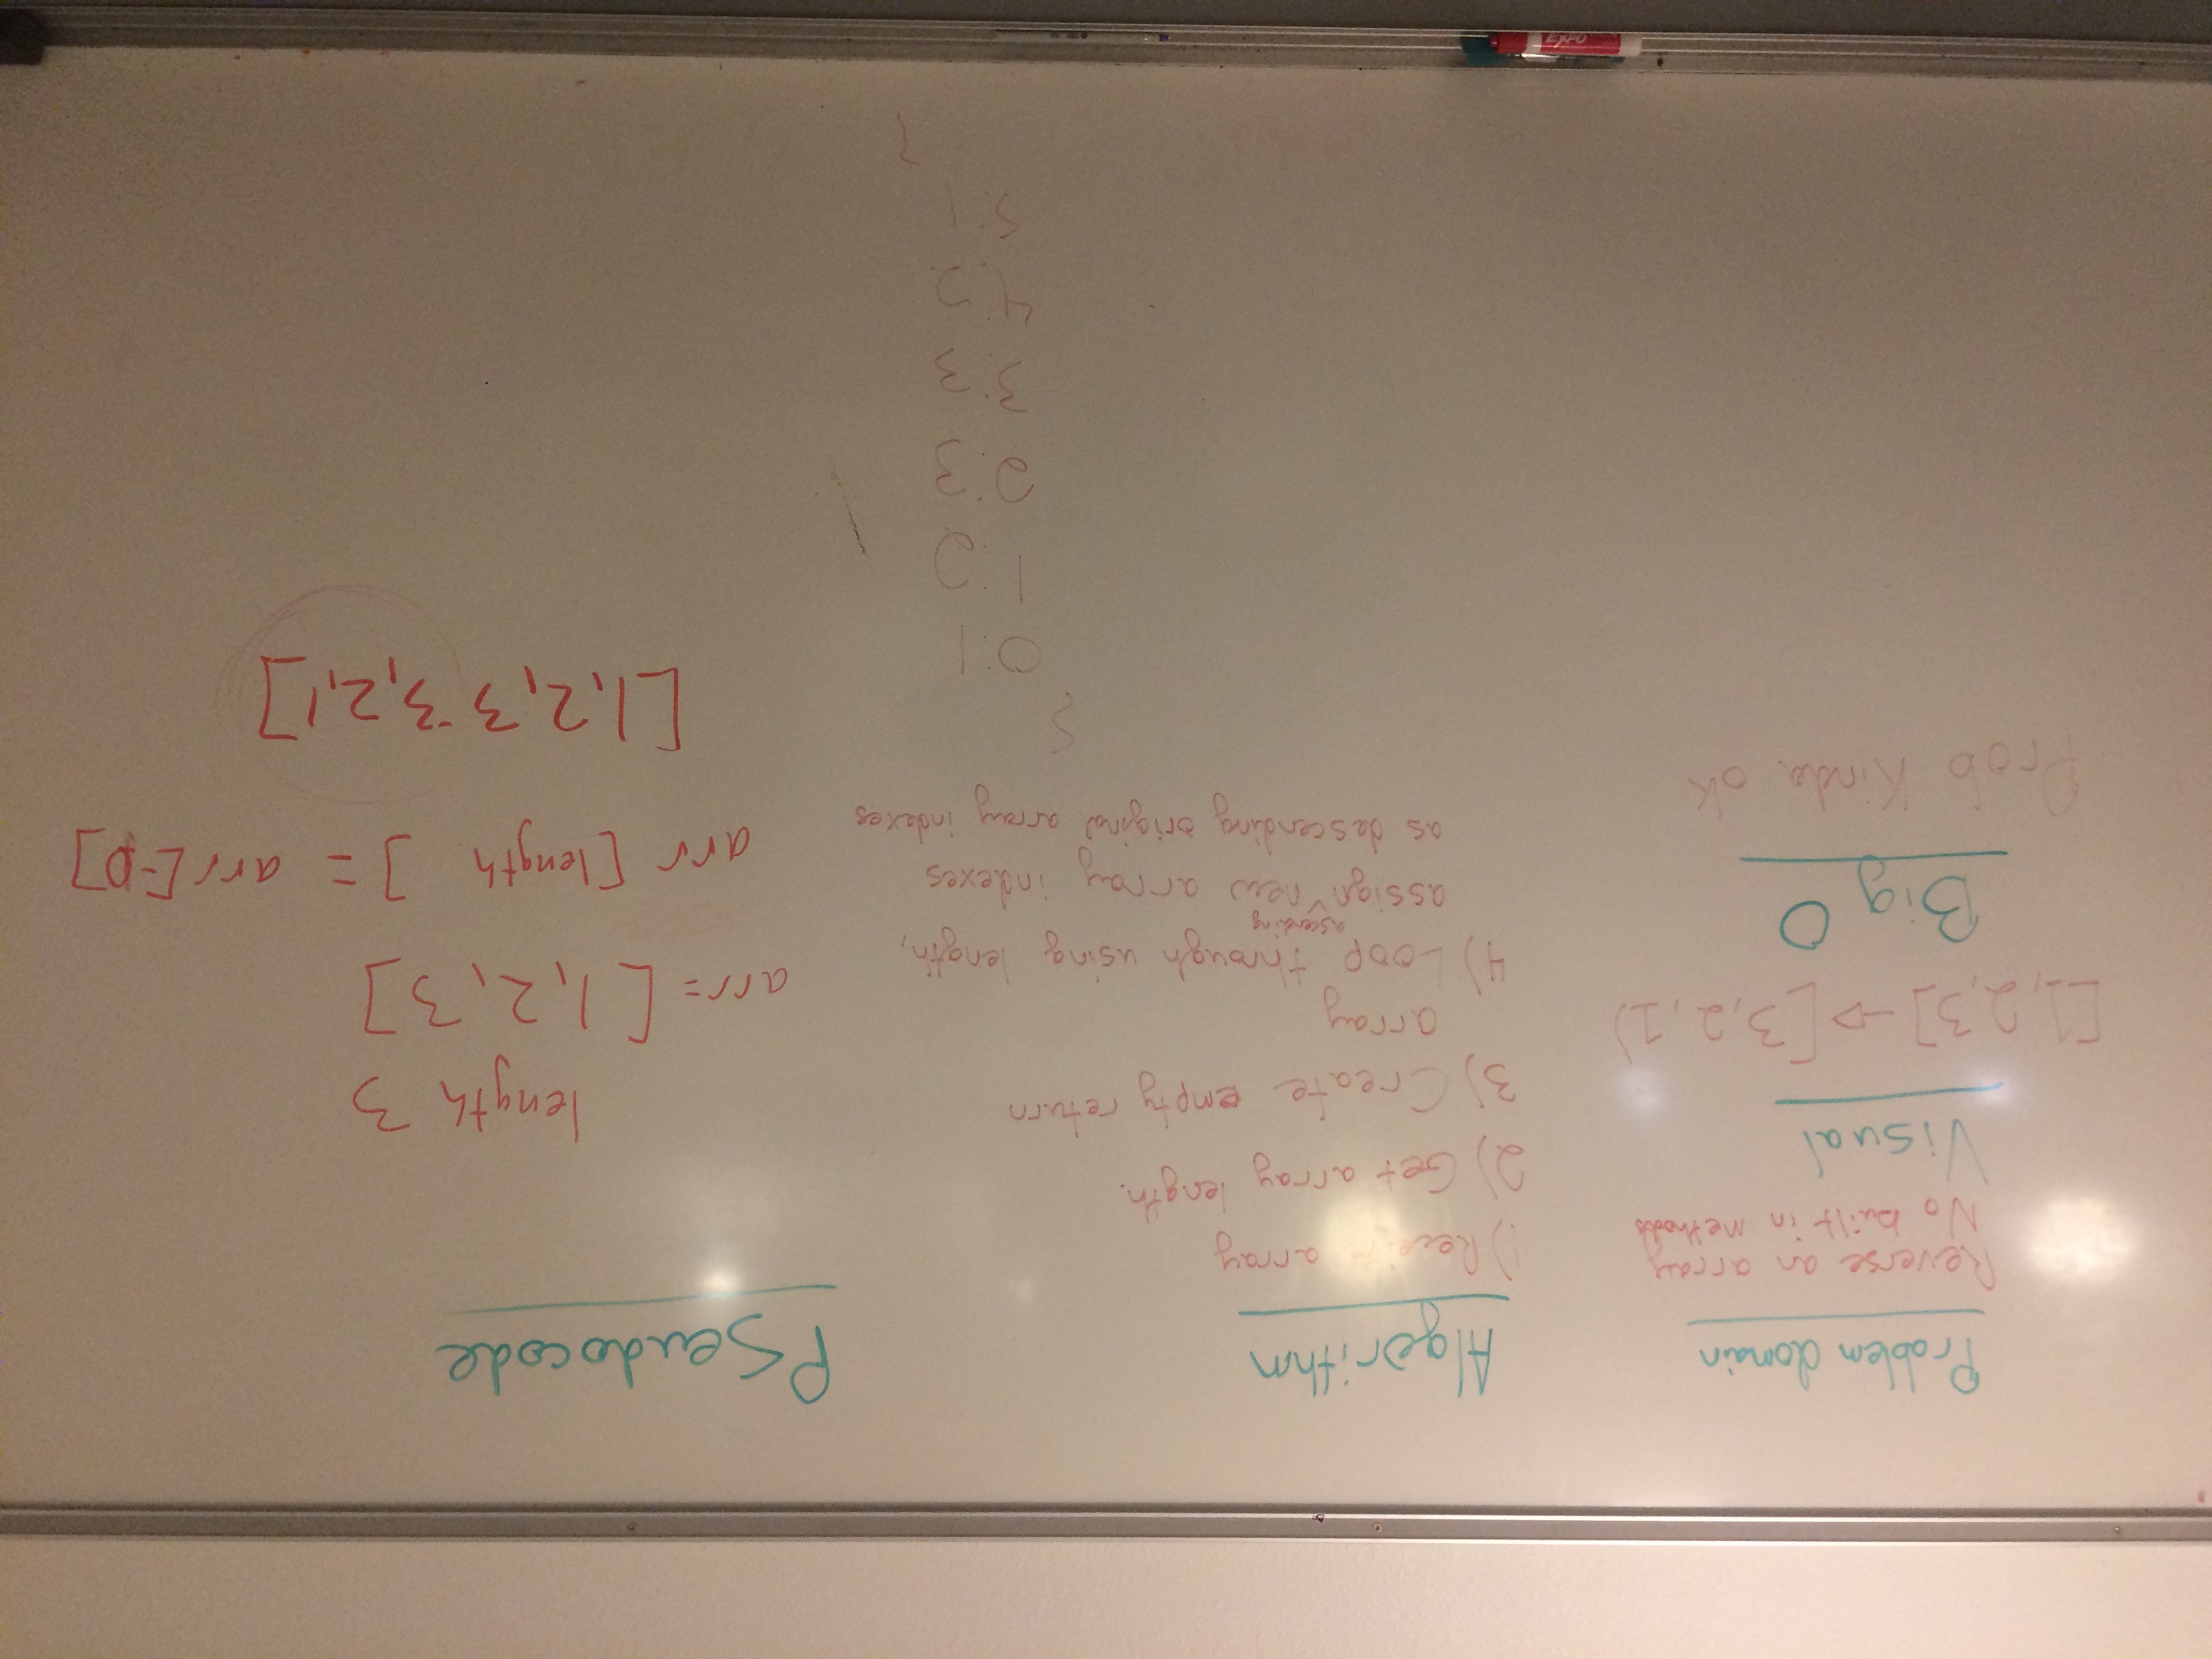 Problem domain
Reverse an array
No built in methods
Visual
[1,2,3] → [3,2,1)
Big O
Prob Kinda ok
Algorithm
1) array
2) Get array length.
3) Create empty return
array
4) Loop through using length,
ascending
assign new array indexes
as descending original array indexes
{
0:1
1:2
2:3
3:3
4:2
5:1
}
Pseudocode
length 3
arr= [1,2,3]
arr [length ] = arr
[1,2,3 3,2,1]
Expo